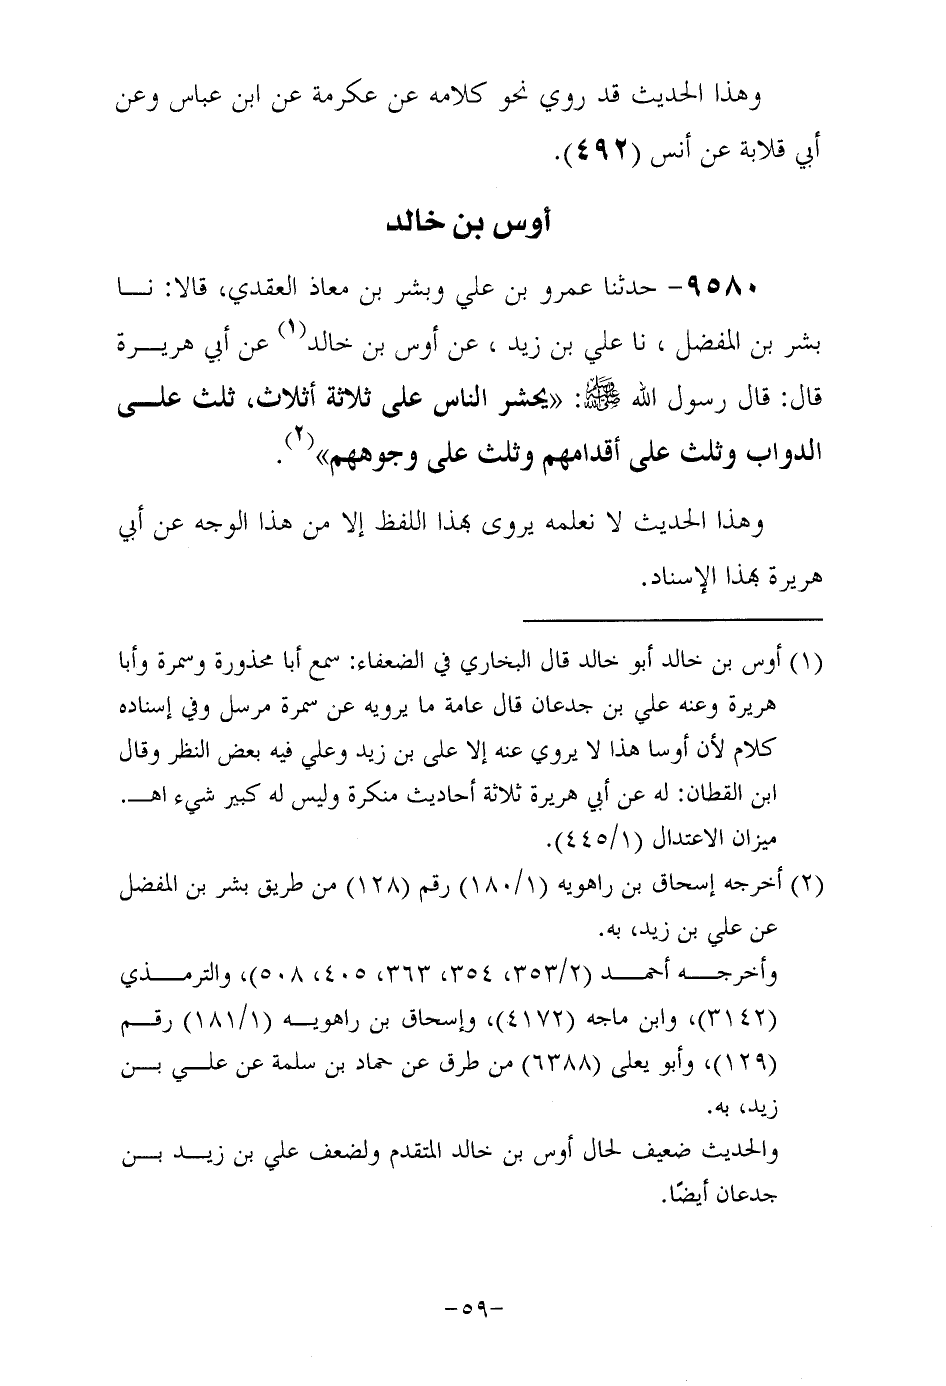 وهذا الحديث قد روي نحو كلامه عن عكرمة عن ابن عباس وعن
أبي قلابة عن أنس (٤٩٢).
أوس بن خالد
٩٥٨٠- حدثنا عمرو بن علي وبشر بن معاذ العقدي، قالا: نـــا
بشر بن المفضل ، نا علي بن زيد ، عن أوس بن خالد(١) عن أبي هريـــرة
قال: قال رسول الله ﷺ: «يحشر الناس على ثلاثة أثلاث، ثلث علـــى
الدواب وثلث على أقدامهم وثلث على وجوههم»(٢).
وهذا الحديث لا نعلمه يروى بهذا اللفظ إلا من هذا الوجه عن أبي
هريرة بهذا الإسناد.
(١) أوس بن خالد أبو خالد قال البخاري في الضعفاء: سمع أبا محذورة وسمرة وأبا
هريرة وعنه علي بن جدعان قال عامة ما يرويه عن سمرة مرسل وفي إسناده
كلام لأن أوسا هذا لا يروي عنه إلا على بن زيد وعلي فيه بعض النظر وقال
ابن القطان: له عن أبي هريرة ثلاثة أحاديث منكرة وليس له كبير شيء اهـــ.
ميزان الاعتدال (٤٤٥/١).
(٢) أخرجه إسحاق بن راهويه (١٨٠/١) رقم (١٢٨) من طريق بشر بن المفضل
عن علي بن زيد، به.
وأخرجـــه أحمـــد (٣٥٣/٢، ٣٥٤، ٣٦٣، ٤٠٥، ٥٠٨)، والترمـــذي
(٣١٤٢)، وابن ماجه (٤١٧٢)، وإسحاق بن راهويـــه (١٨١/١) رقـــم
(١٢٩)، وأبو يعلى (٦٣٨٨) من طرق عن حماد بن سلمة عن علـــي بـــن
زيد، به.
والحديث ضعيف لحال أوس بن خالد المتقدم ولضعف علي بن زيـــد بـــن
جدعان أيضًا.
-٥٩-